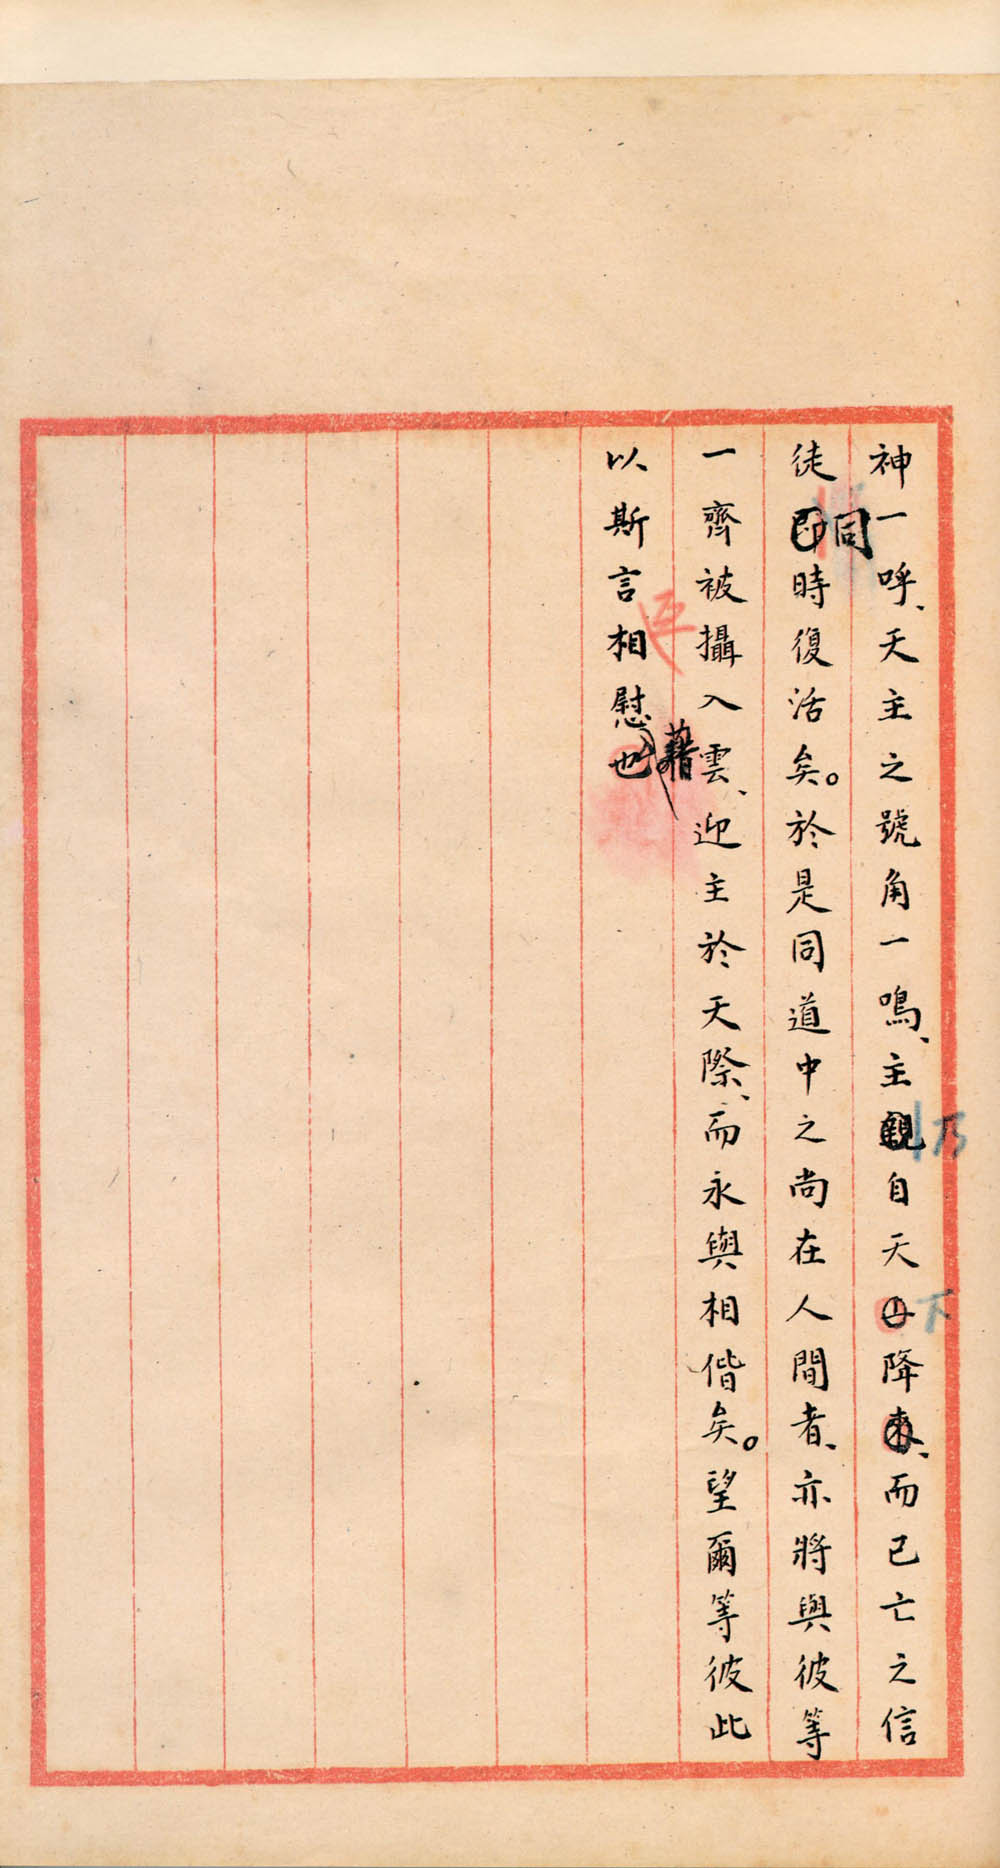 神一呼、天主之號角一鳴、主親乃自天下降來、而已亡之信
徒同時復活矣。於是同道中之尚在人間者、亦將與彼等
一齊被攝入雲、迎主於天際、而永與相偕矣。望爾等彼此
以斯言相慰藉也